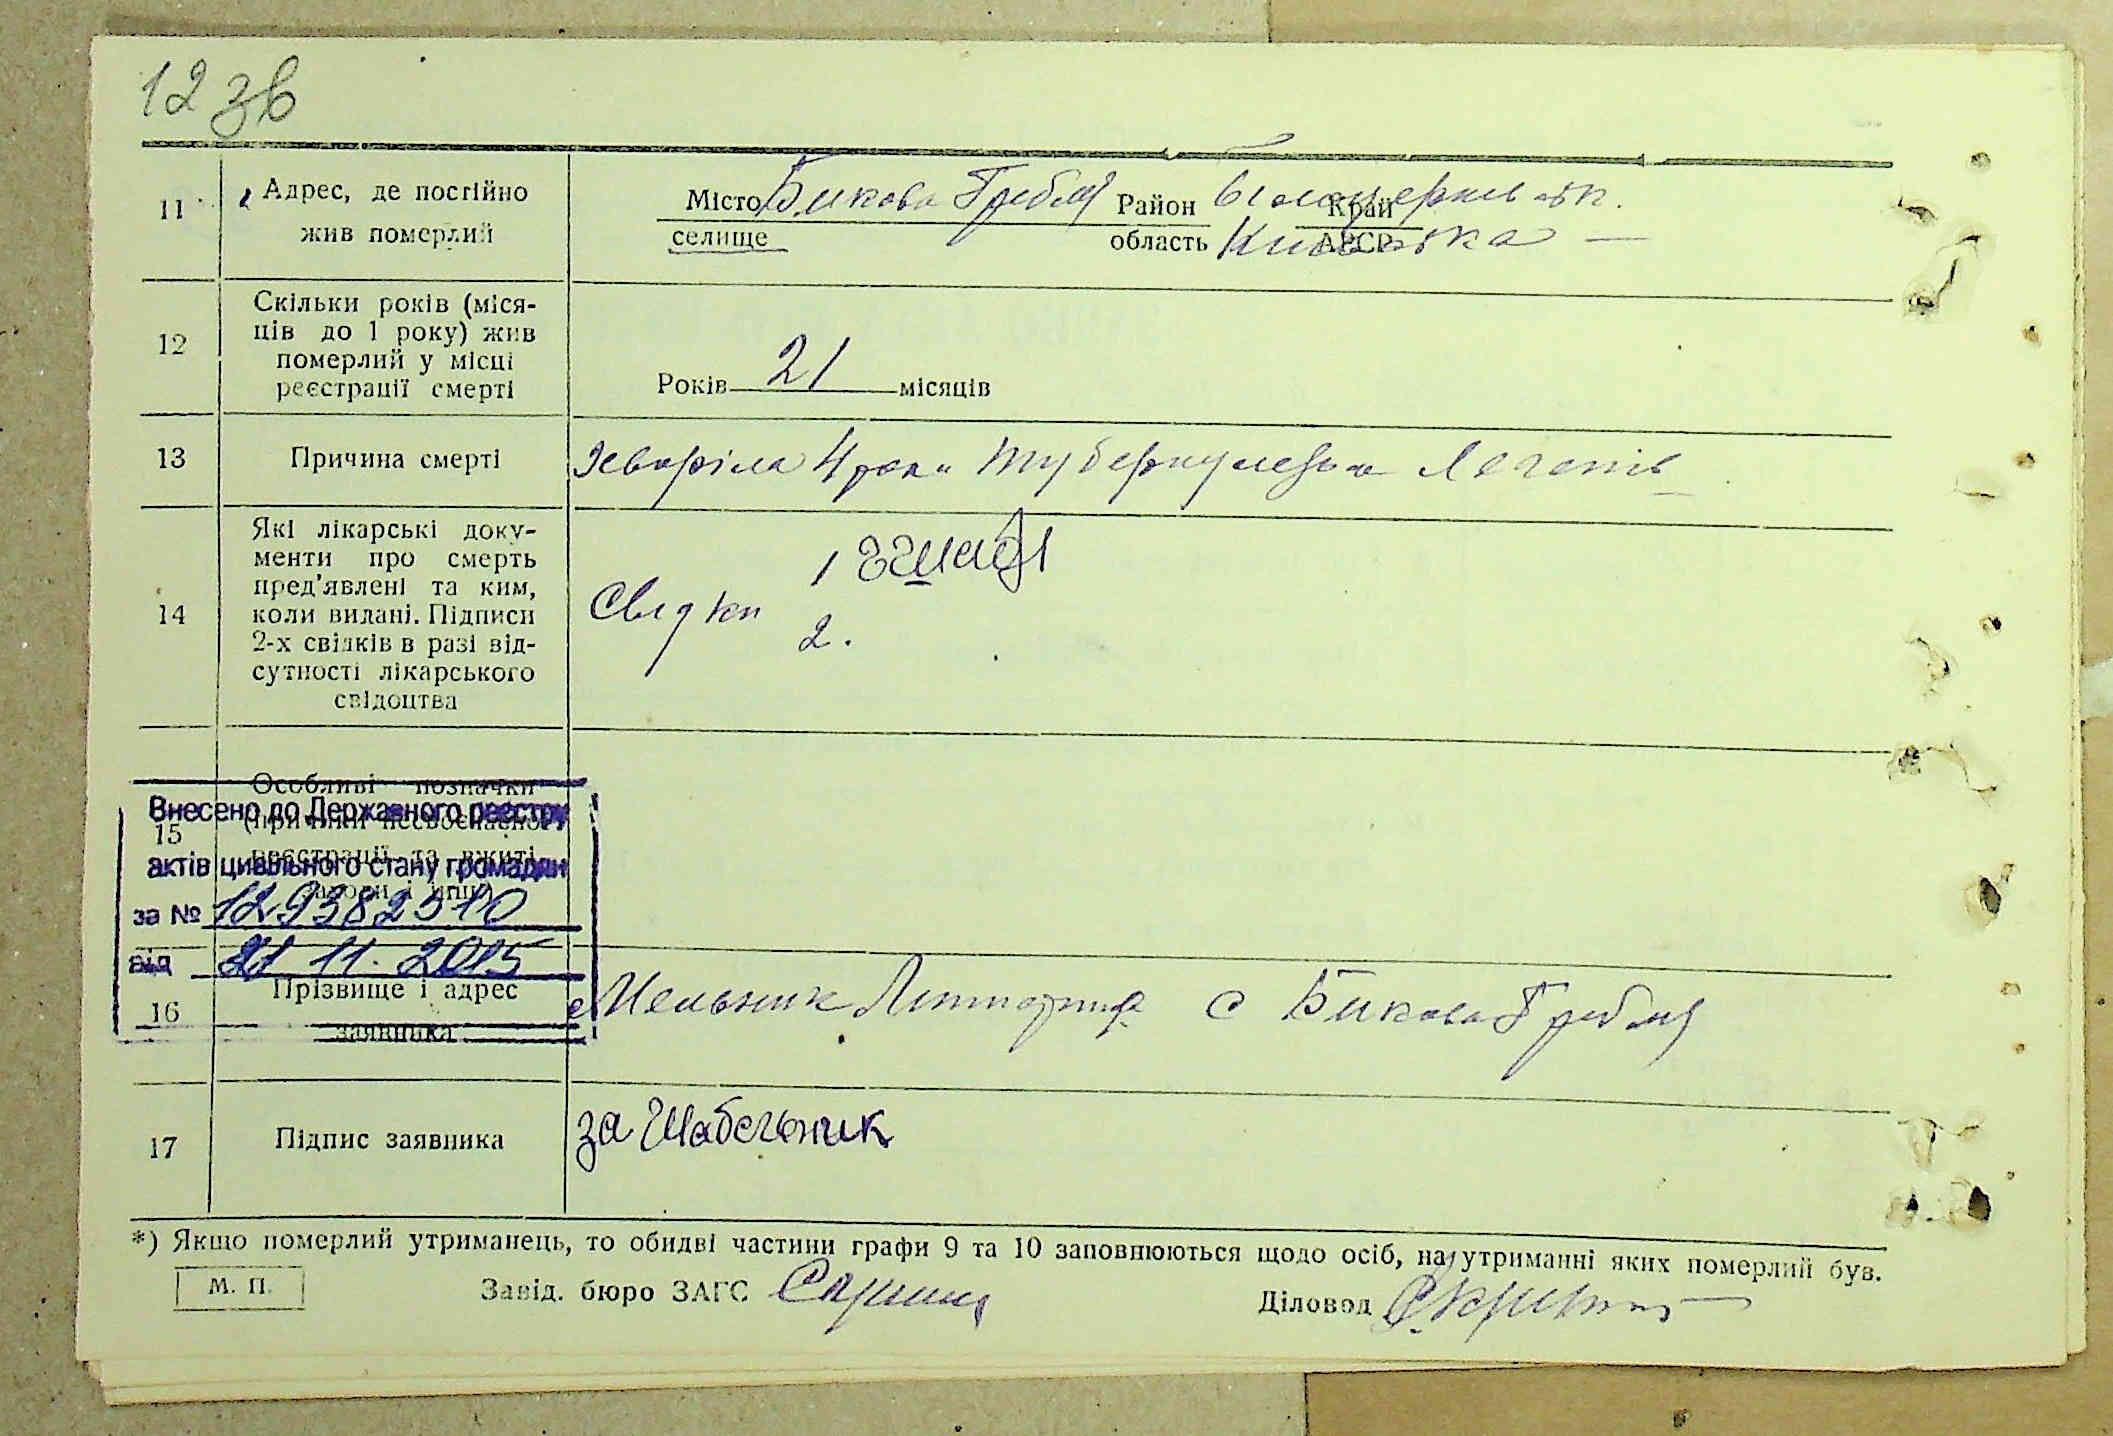 12 зв
11 Адрес, де постійно
жив померлий
Місто Бикова Гребля Район Білоцерківськ. Край
селище область Київська АРСР
12 Скільки років (міся-
ців до 1 року) жив
померлий у місці
реєстрації смерті
Років 21 місяців
13 Причина смерті
Хворіла 4 роки туберкульоза Легенів
14 Які лікарські доку-
менти про смерть
пред'явлені та ким,
коли видані. Підписи
2-х свідків в разі від-
сутності лікарського
свідоцтва
Свідки
1
2.
15 Особливі позначки
(причини несвоєчасної
реєстрації та вжиті
заходи і інш.)
Внесено до Державного реєстру
актів цивільного стану громадян
за №
від 21 11. 2015
16 Прізвище і адрес
заявника
Мельник с Бикова Гребля
17 Підпис заявника
за Шабельник
*) Якщо померлий утриманець, то обидві частини графи 9 та 10 заповнюються щодо осіб, на утриманні яких померлий був.
М. П. Завід. бюро ЗАГС Діловод